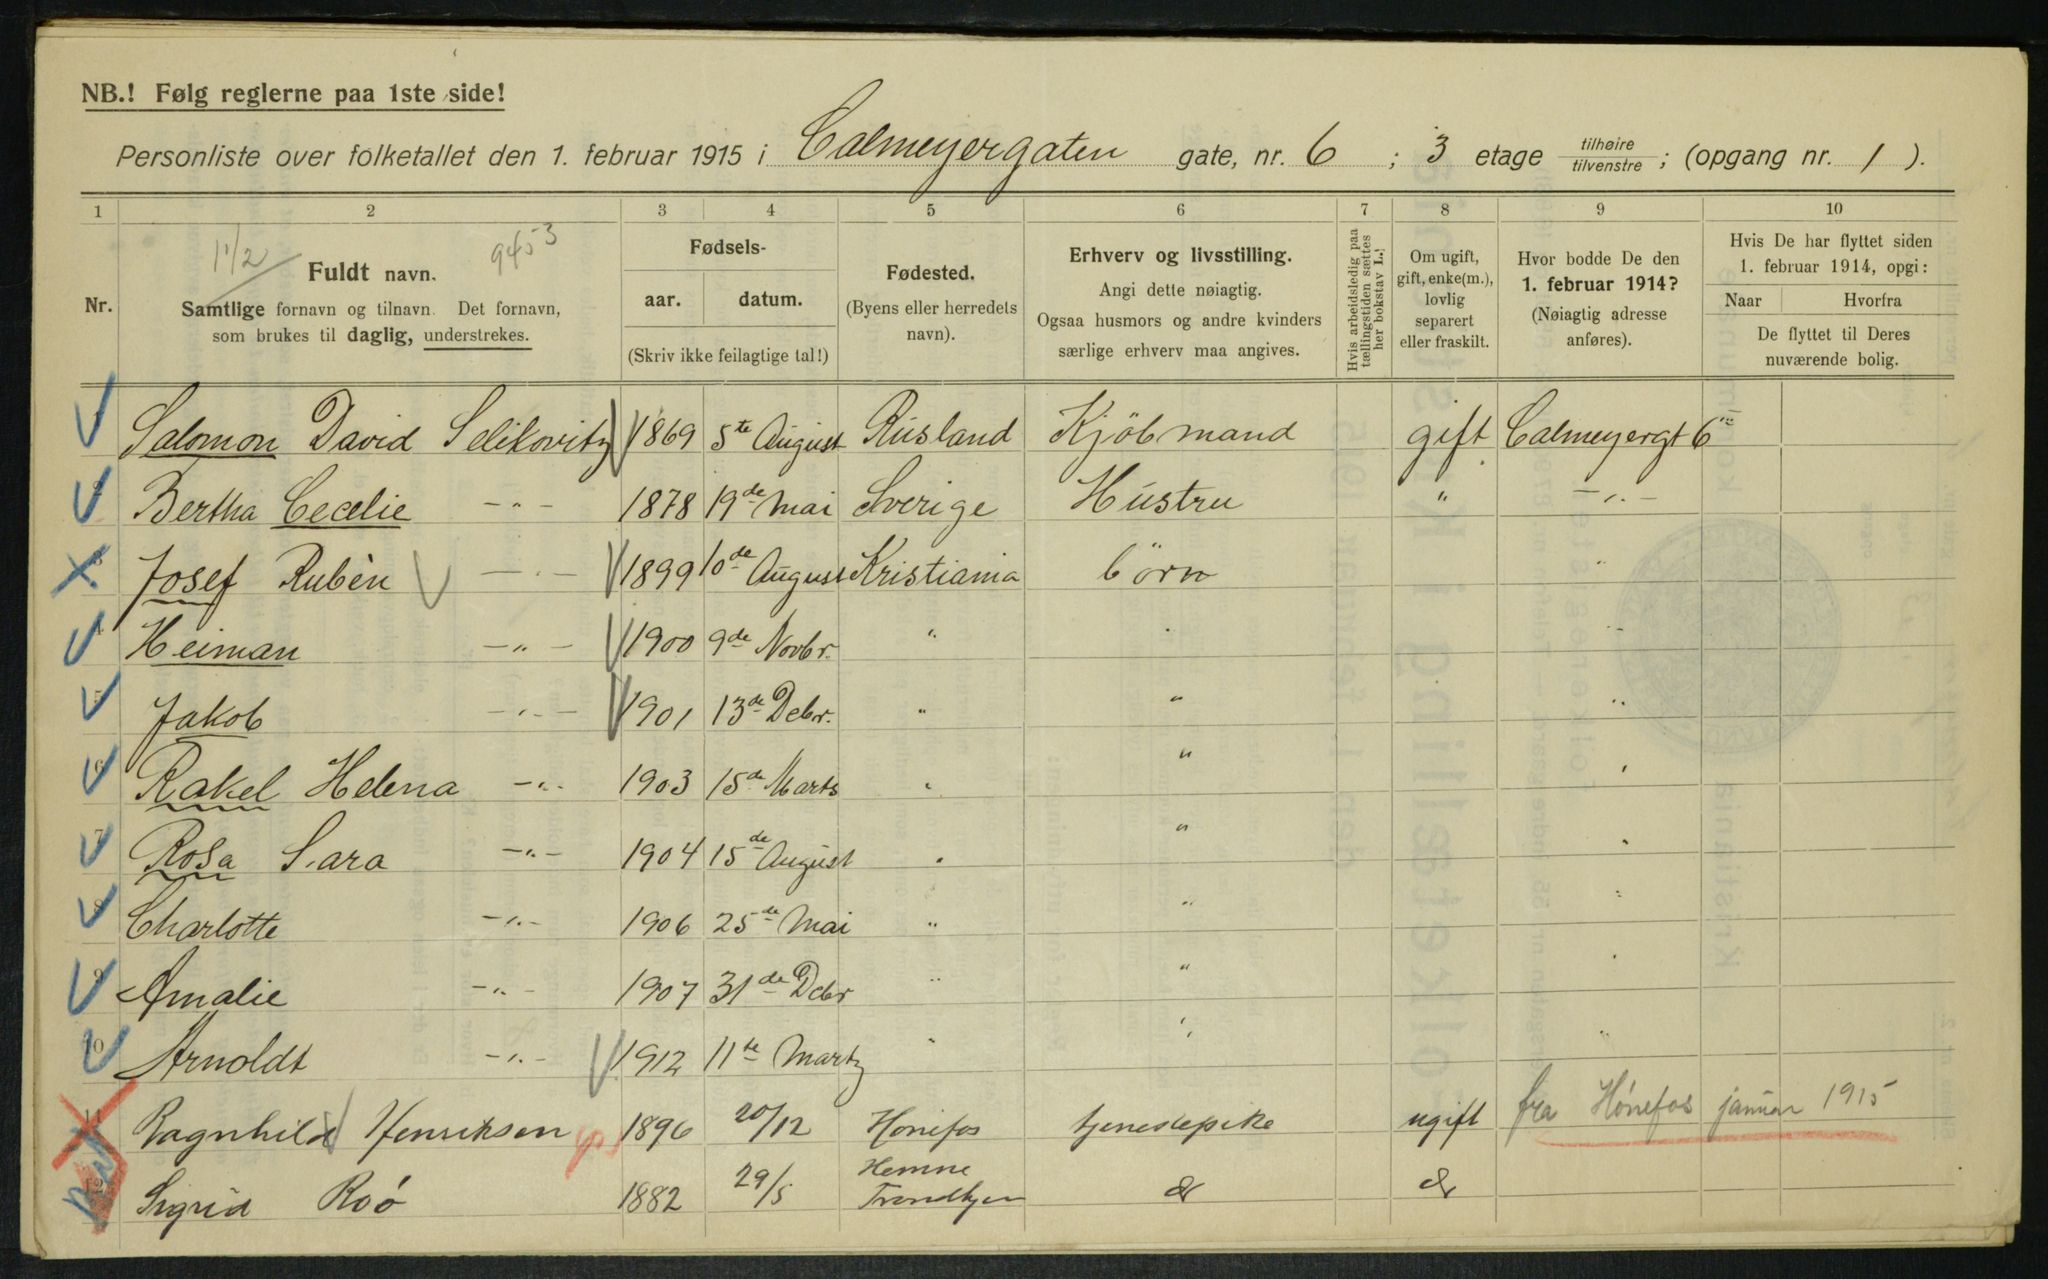 NB.! Følg reglerne paa 1ste side!
Personliste over folketallet den 1. februar 1915 i Calmeyergaten gate, nr. 6 ; 3 etage tilhøire tilvenstre ; (opgang nr. 1 ).
1 2 3 4 5 6 7 8 9 10
11/2 9453
Nr.
Fuldt navn.
Samtlige fornavn og tilnavn. Det fornavn,
som brukes til daglig, understrekes.
Fødsels-
aar. datum.
(Skriv ikke feilagtige tal!)
Fødested.
(Byens eller herredets
navn).
Erhverv og livsstilling.
Angi dette nøiagtig.
Ogsaa husmors og andre kvinders
særlige erhverv maa angives.
Hvis arbeidsledig paa
tællingstiden sættes
her bokstav L.!
Om ugift,
gift, enke(m.),
lovlig
separert
eller fraskilt.
Hvor bodde De den
1. februar 1914?
(Nøiagtig adresse
anføres).
Hvis De har flyttet siden
1. februar 1914, opgi:
Naar Hvorfra
De flyttet til Deres
nuværende bolig.
Salomon David Selikovitz 1869 5te August Rusland Kjöbmand gift Calmeyergt 6
2 Bertha Cecelie -"- 1878 19de Mai Sverige Hustru " -"-
3 Josef Rubèn -"- 1899 10de August Kristiania börn "
4 Heiman -"- 1900 9de Novbr. " " "
5 Jakob -"- 1901 13de Debr. " " "
6 Rakel Helena -"- 1903 15de Marts " " "
7 Rosa Sara -"- 1904 15de August " " "
8 Charlotte -"- 1906 25de Mai " " "
9 Amalie -"- 1907 31de Debr " " "
10 Arnoldt -"- 1912 11te Martz " " "
11 Ragnhild Henriksen 1896 20/12 Hønefos tjenestepike ugift fra Hønefos januar 1915
12 Sigrid Roó 1882 29/5 Hemne Trondhjem do do